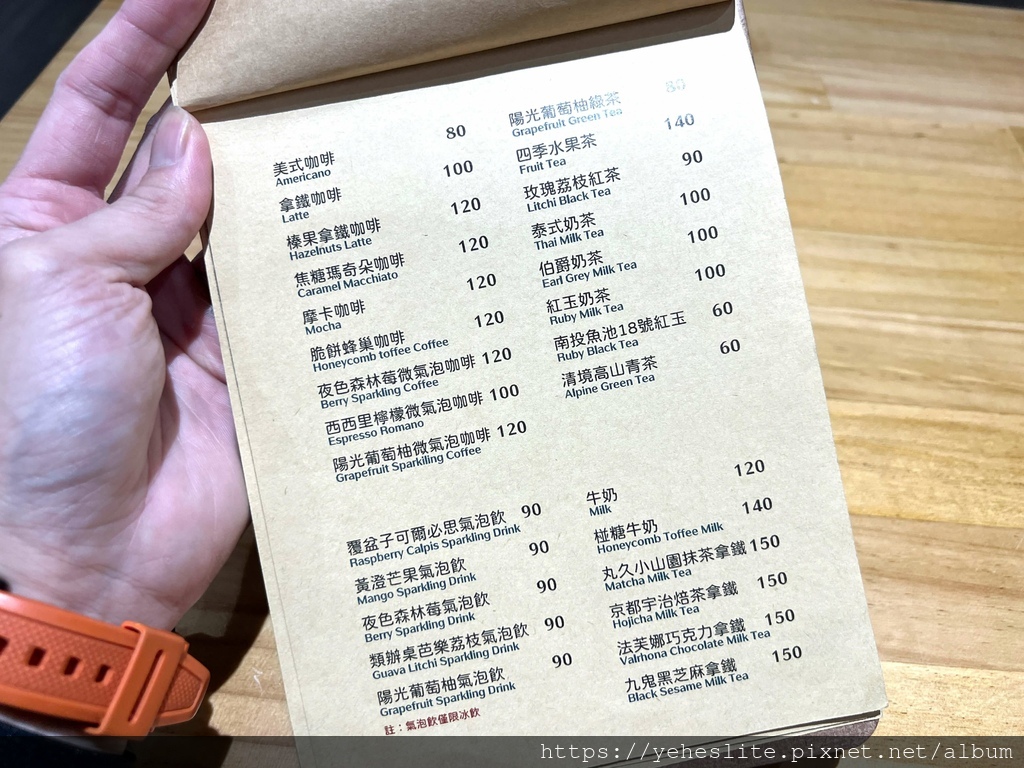 美式咖啡 80
Americano
拿鐵咖啡 100
Latte
榛果拿鐵咖啡 120
Hazelnuts Latte
焦糖瑪奇朵咖啡 120
Caramel Macchiato
摩卡咖啡 120
Mocha
脆餅蜂巢咖啡 120
Honeycomb toffee Coffee
夜色森林莓微氣泡咖啡 120
Berry Sparkling Coffee
西西里檸檬微氣泡咖啡 100
Espresso Romano
陽光葡萄柚微氣泡咖啡 120
Grapefruit Sparkiling Coffee
覆盆子可爾必思氣泡飲 90
Raspberry Calpis Sparkling Drink
黃澄芒果氣泡飲 90
Mango Sparkling Drink
夜色森林莓氣泡飲 90
Berry Sparkling Drink
類辦桌芭樂荔枝氣泡飲 90
Guava Litchi Sparkling Drink
陽光葡萄柚氣泡飲 90
Grapefruit Sparkling Drink
註：氣泡飲僅限冰飲
陽光葡萄柚綠茶 80
Grapefruit Green Tea
四季水果茶 140
Fruit Tea
玫瑰荔枝紅茶 90
Litchi Black Tea
泰式奶茶 100
Thai Milk Tea
伯爵奶茶 100
Earl Grey Milk Tea
紅玉奶茶 100
Ruby Milk Tea
南投魚池18號紅玉 60
Ruby Black Tea
清境高山青茶 60
Alpine Green Tea
牛奶 120
Milk
椪糖牛奶 140
Honeycomb Toffee Milk
丸久小山園抹茶拿鐵 150
Matcha Milk Tea
京都宇治焙茶拿鐵 150
Hojicha Milk Tea
法芙娜巧克力拿鐵 150
Valrhona Chocolate Milk Tea
九鬼黑芝麻拿鐵 150
Black Sesame Milk Tea
https://yeheslite.pixnet.net/album